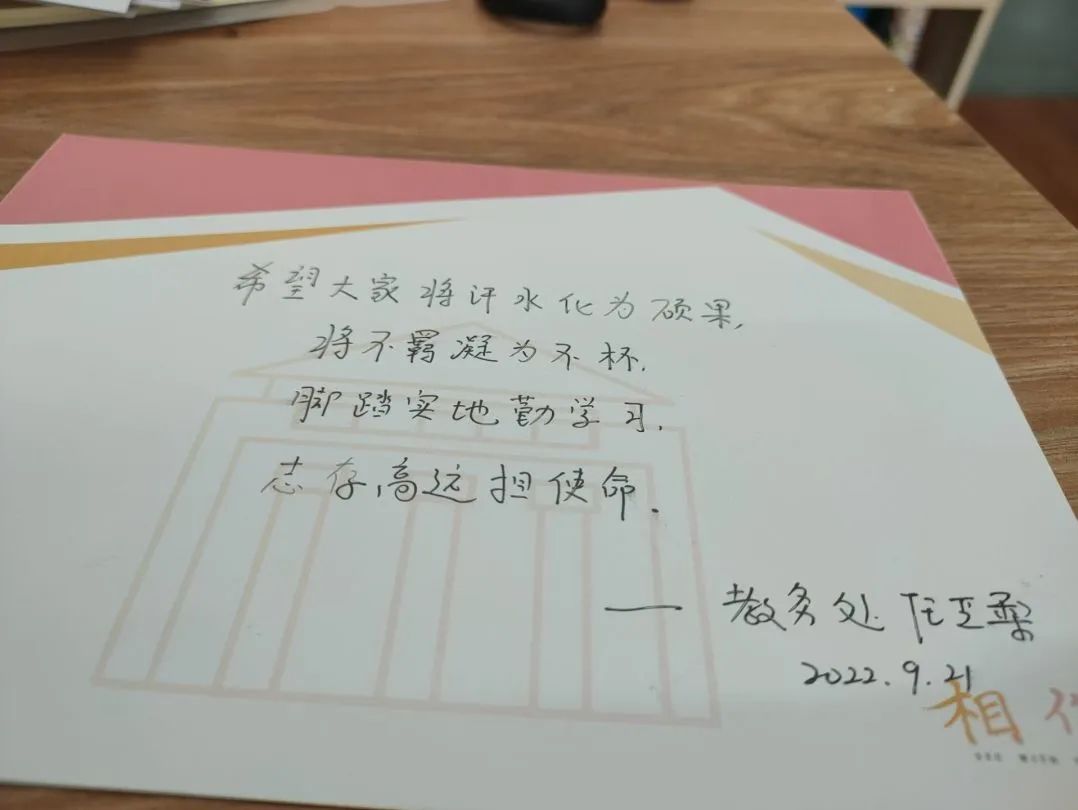 希望大家将汗水化为硕果,
将不羁凝为不杯.
脚踏实地勤学习.
志存高远担使命.
—— 教务处
2022.9.21
相